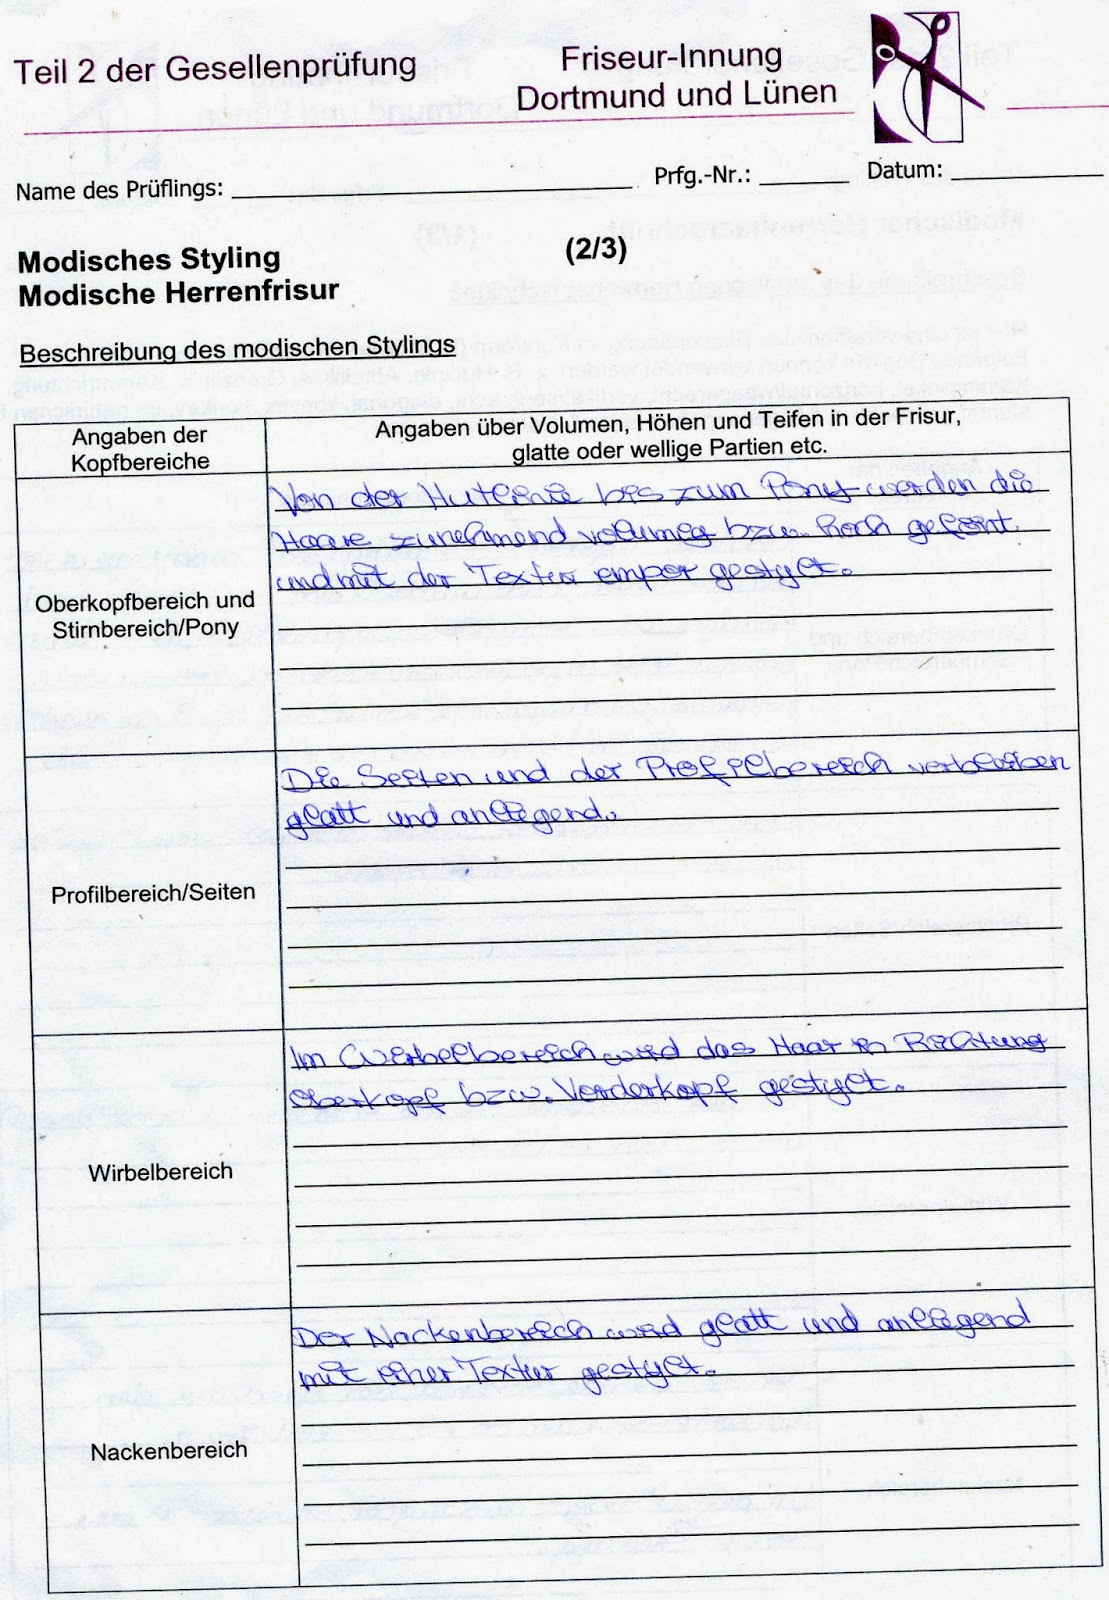 Teil 2 der Gesellenprüfung
Friseur-Innung
Dortmund und Lünen
Name des Prüflings: Prfg.-Nr.: Datum:
Modisches Styling (2/3)
Modische Herrenfrisur
Beschreibung des modischen Stylings
Angaben der
Kopfbereiche
Angaben über Volumen, Höhen und Teifen in der Frisur,
glatte oder wellige Partien etc.
Oberkopfbereich und
Stirnbereich/Pony
Von der Hutlinie bis zum Pony werden die
Haare zunehmend volumig bzw. hoch geföhnt
und mit der Textur empor gestylt.
Profilbereich/Seiten
Die Seiten und der Profilbereich verbleiben
glatt und anliegend.
Wirbelbereich
Im Wirbelbereich wird das Haar in Richtung
Oberkopf bzw. Vorderkopf gestylt.
Nackenbereich
Der Nackenbereich wird glatt und anliegend
mit einer Textur gestylt.